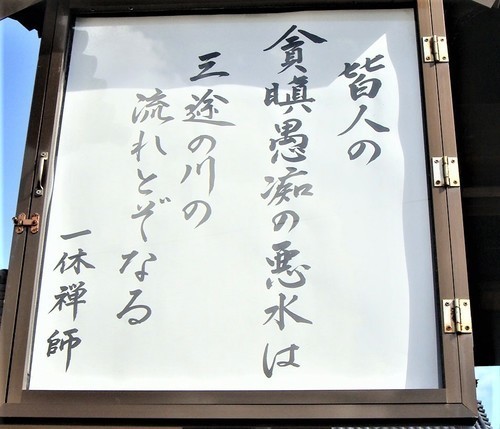 皆人の
貪瞋愚痴の悪水は
三途の川の
流れとぞなる
一休禅師